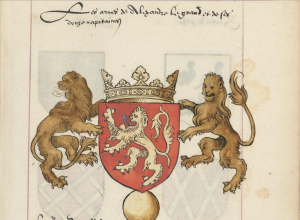 Les armes de Alexandre le grand et de ses
douze capitaines